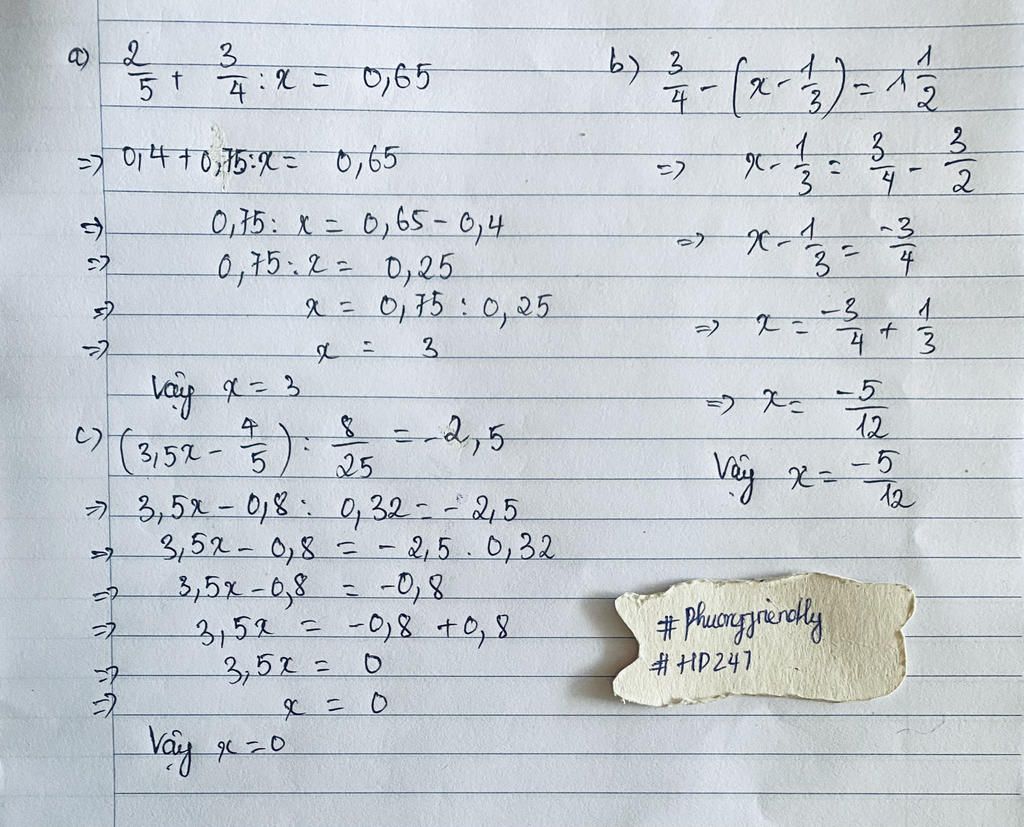 a) 2/5 + 3/4 : x = 0,65
=> 0,4 + 0,75 : x = 0,65
=> 0,75 : x = 0,65 - 0,4
=> 0,75 : x = 0,25
=> x = 0,75 : 0,25
=> x = 3
Vậy x = 3
c) (3,5x - 4/5) : 8/25 = -2,5
=> 3,5x - 0,8 : 0,32 = -2,5
=> 3,5x - 0,8 = -2,5 . 0,32
=> 3,5x - 0,8 = -0,8
=> 3,5x = -0,8 + 0,8
=> 3,5x = 0
=> x = 0
Vậy x = 0
b) 3/4 - (x - 1/3) = 1 1/2
=> x - 1/3 = 3/4 - 3/2
=> x - 1/3 = -3/4
=> x = -3/4 + 1/3
=> x = -5/12
Vậy x = -5/12
# Phuongfriendly
# HD247